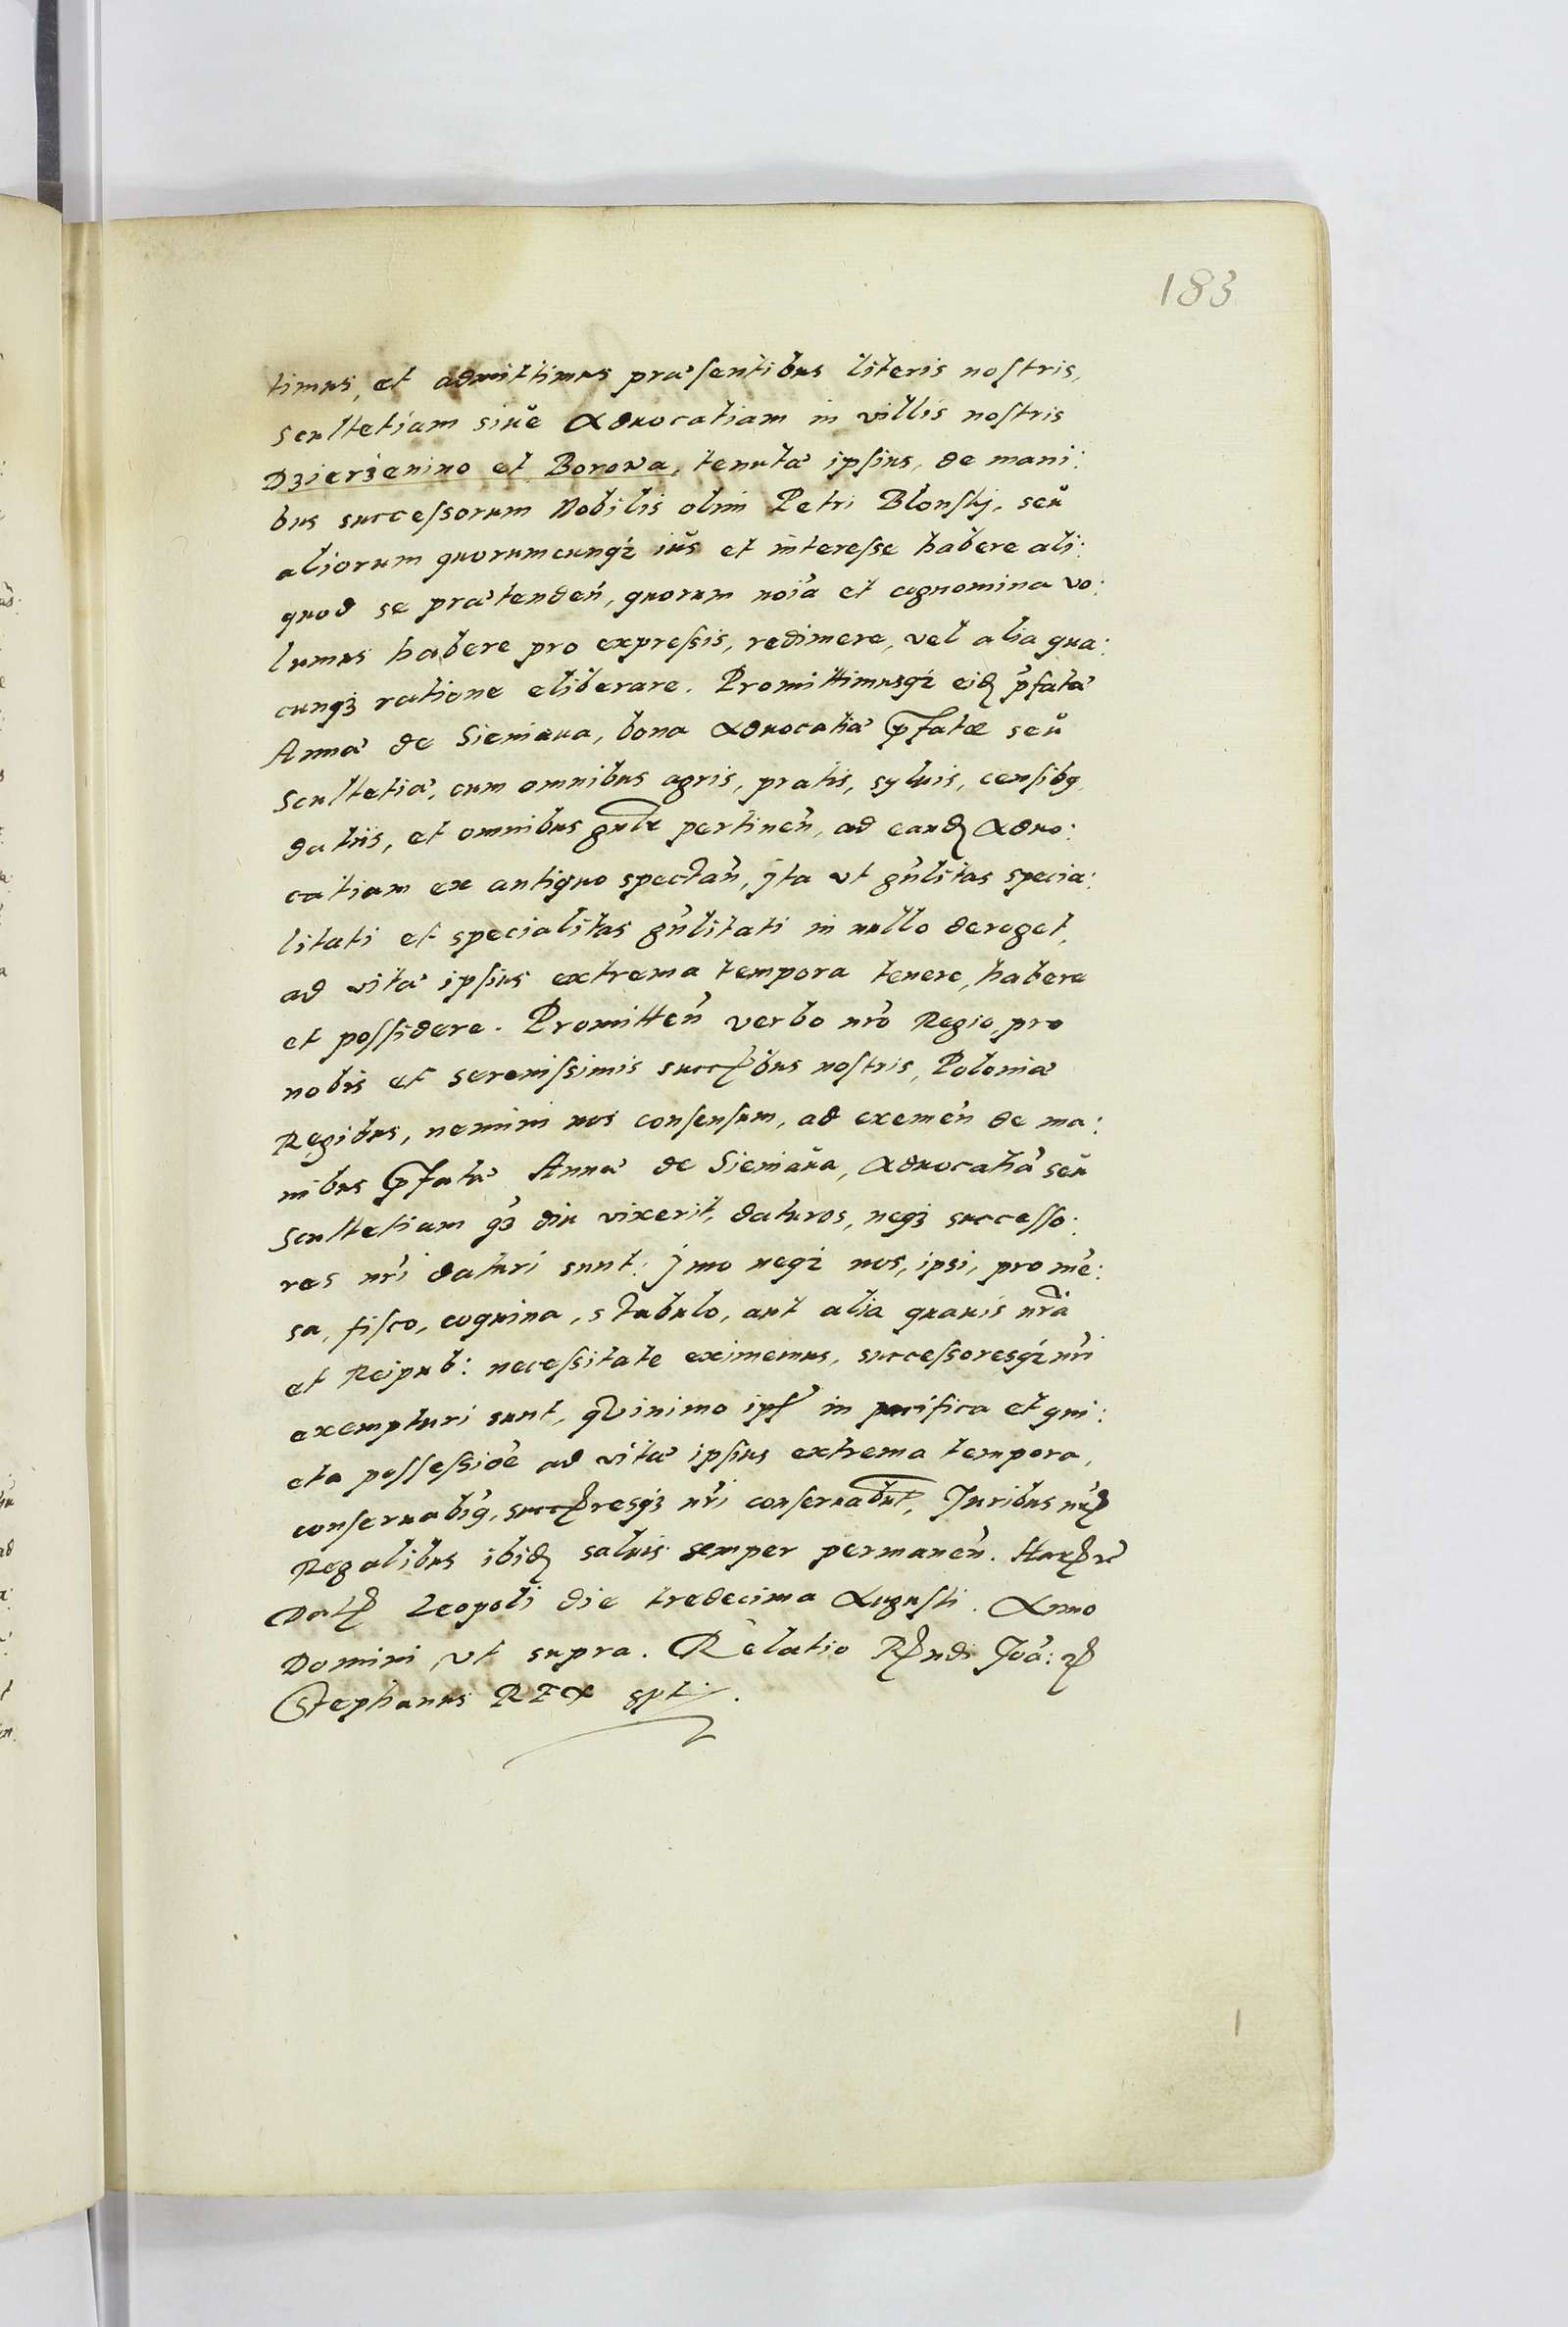 183
timus, et admittimus præsentibus literis nostris,
scultetiam siue Aduocatiam in villis nostris
Dzierżenino et Borowa, tenutæ ipsius, de mani:
bus successorum Nobilis olim Petri Blonskj, seu
aliorum quorumcunq3 ius et interesse habere ali:
quod se prætenden̄, quorum noīa et cognomina vo:
lumus habere pro expressis, redimere, vel alia qua:
cunq3 ratione eliberare. Promittimusq3 eid. p̄fatæ
Annæ de Sieniaua, bona Aduocatiæ p̄fatæ seu
Scultetiæ, cum omnibus agris, pratis, syluis, censibq
datiis, et omnibus gn̄lr pertinen̄, ad eand. Aduo:
catiam ex antiquo spectan̄, jta vt gn̄litas specia:
litati et specialitas gn̄litati in nullo deroget,
ad vitæ ipsius extrema tempora tenere, habere
et possidere. Promitten̄ verbo nr̄o Regio, pro
nobis et serenissimis succ̄bus nostris, Poloniæ
Regibus, nemini nos consensum, ad eximen̄ de ma:
nibus p̄fatæ Annæ de Sieniaua, Aduocatiā seu
Scultetiam q3 diu vixerit, daturos, neq3 successo:
res nr̄i daturi sunt: jmo neq3 nos, ipsi, pro mē:
sa, fisco, coquina, stabulo, aut alia quauis nr̄a
et Reipub: necessitate eximemus, successoresq3 nr̄i
exempturi sunt, quinimo ips̄ in pacifica et qui:
eta possessioē ad vitæ ipsius extrema tempora,
conseruabiq̄, succ̄resq3 nr̄i conseruabūt, Juribus nr̄
Regalibus ibid. saluis semper permanen̄. Har̄ r̄
Dat̄ Leopoli die tredecima Augusti. Anno
Domini vt supra. Relatio R̄ndi Joā: r̄
Stephanus REX spt.